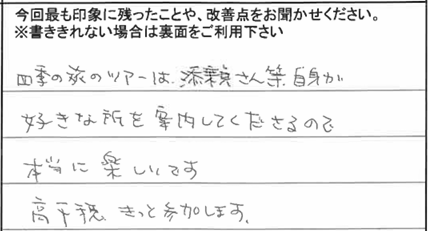 今回最も印象に残ったことや、改善点をお聞かせください。
※書ききれない場合は裏面をご利用下さい
四季の旅のツアーは、添乗さん等自身が
好きな所を案内してくださるので
本当に楽しいです
高千穂 きっと参加します。